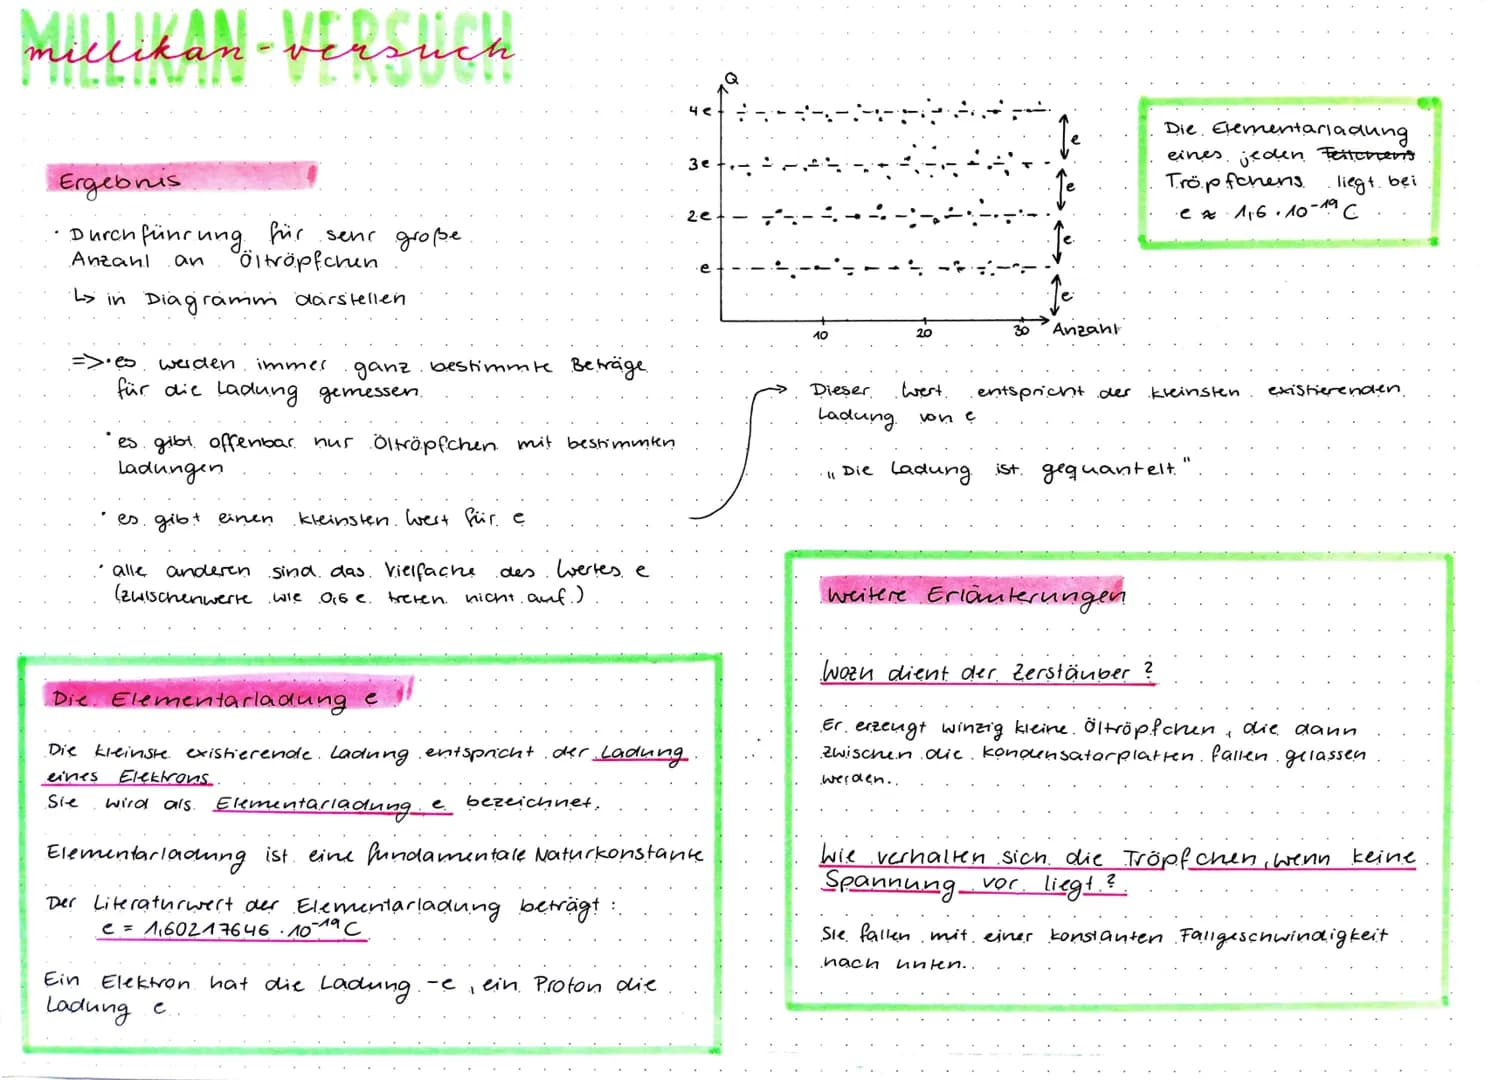 MILLIKAN-VERSUCH
millikan-versuch
Ergebnis
· Durchführung für sehr große
Anzahl an Öltröpfchen
↳ in Diagramm darstellen
=> · es werden immer ganz bestimmte Beträge
für die Ladung gemessen
· es gibt offenbar nur Öltröpfchen mit bestimmten
Ladungen
· es gibt einen kleinsten Wert für e
· alle anderen sind das Vielfache des Wertes e
(zwischenwerte wie 0,6 e treten nicht auf.)
Q
4e
3e
2e
e
e
e
e
e
10 20 30 Anzahl
Die Elementarladung
eines jeden Teilchens
Tröpfchens liegt bei
e ≈ 1,6 · 10⁻¹⁹ C
Dieser Wert entspricht der kleinsten existierenden
Ladung von e
„Die Ladung ist gequantelt"
Die Elementarladung e
Die kleinste existierende Ladung entspricht der Ladung
eines Elektrons
Sie wird als Elementarladung e bezeichnet.
Elementarladung ist eine fundamentale Naturkonstante
Der Literaturwert der Elementarladung beträgt:
e = 1,60217646 · 10⁻¹⁹ C
Ein Elektron hat die Ladung -e, ein Proton die
Ladung e.
Weitere Erläuterungen
Wozu dient der Zerstäuber?
Er erzeugt winzig kleine Öltröpfchen, die dann
zwischen die Kondensatorplatten fallen gelassen
werden.
Wie verhalten sich die Tröpfchen, wenn keine
Spannung vor liegt?
Sie fallen mit einer konstanten Fallgeschwindigkeit
nach unten.